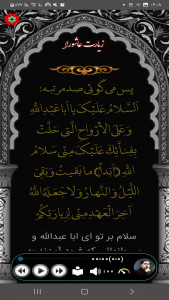 ۱۴:۰۸
زیارت عاشورا
پس می‌گوئی صد مرتبه:
اَلسَّلامُ عَلَیْکَ یا اَبا عَبْدِاللهِ
وَعَلَی الْاَرْواحِ الَّتی حَلَّتْ
بِفِنائِکَ عَلَیْکَ مِنّی سَلامُ
اللهِ [اَبَداً] ما بَقیتُ وَبَقِیَ
اللَّیْلُ وَالنَّهارُ وَلا جَعَلَهُ اللهُ
آخِرَ الْعَهْدِ مِنّی لِزِیارَتِکُمْ
سلام بر تو ای ابا عبدالله و
100